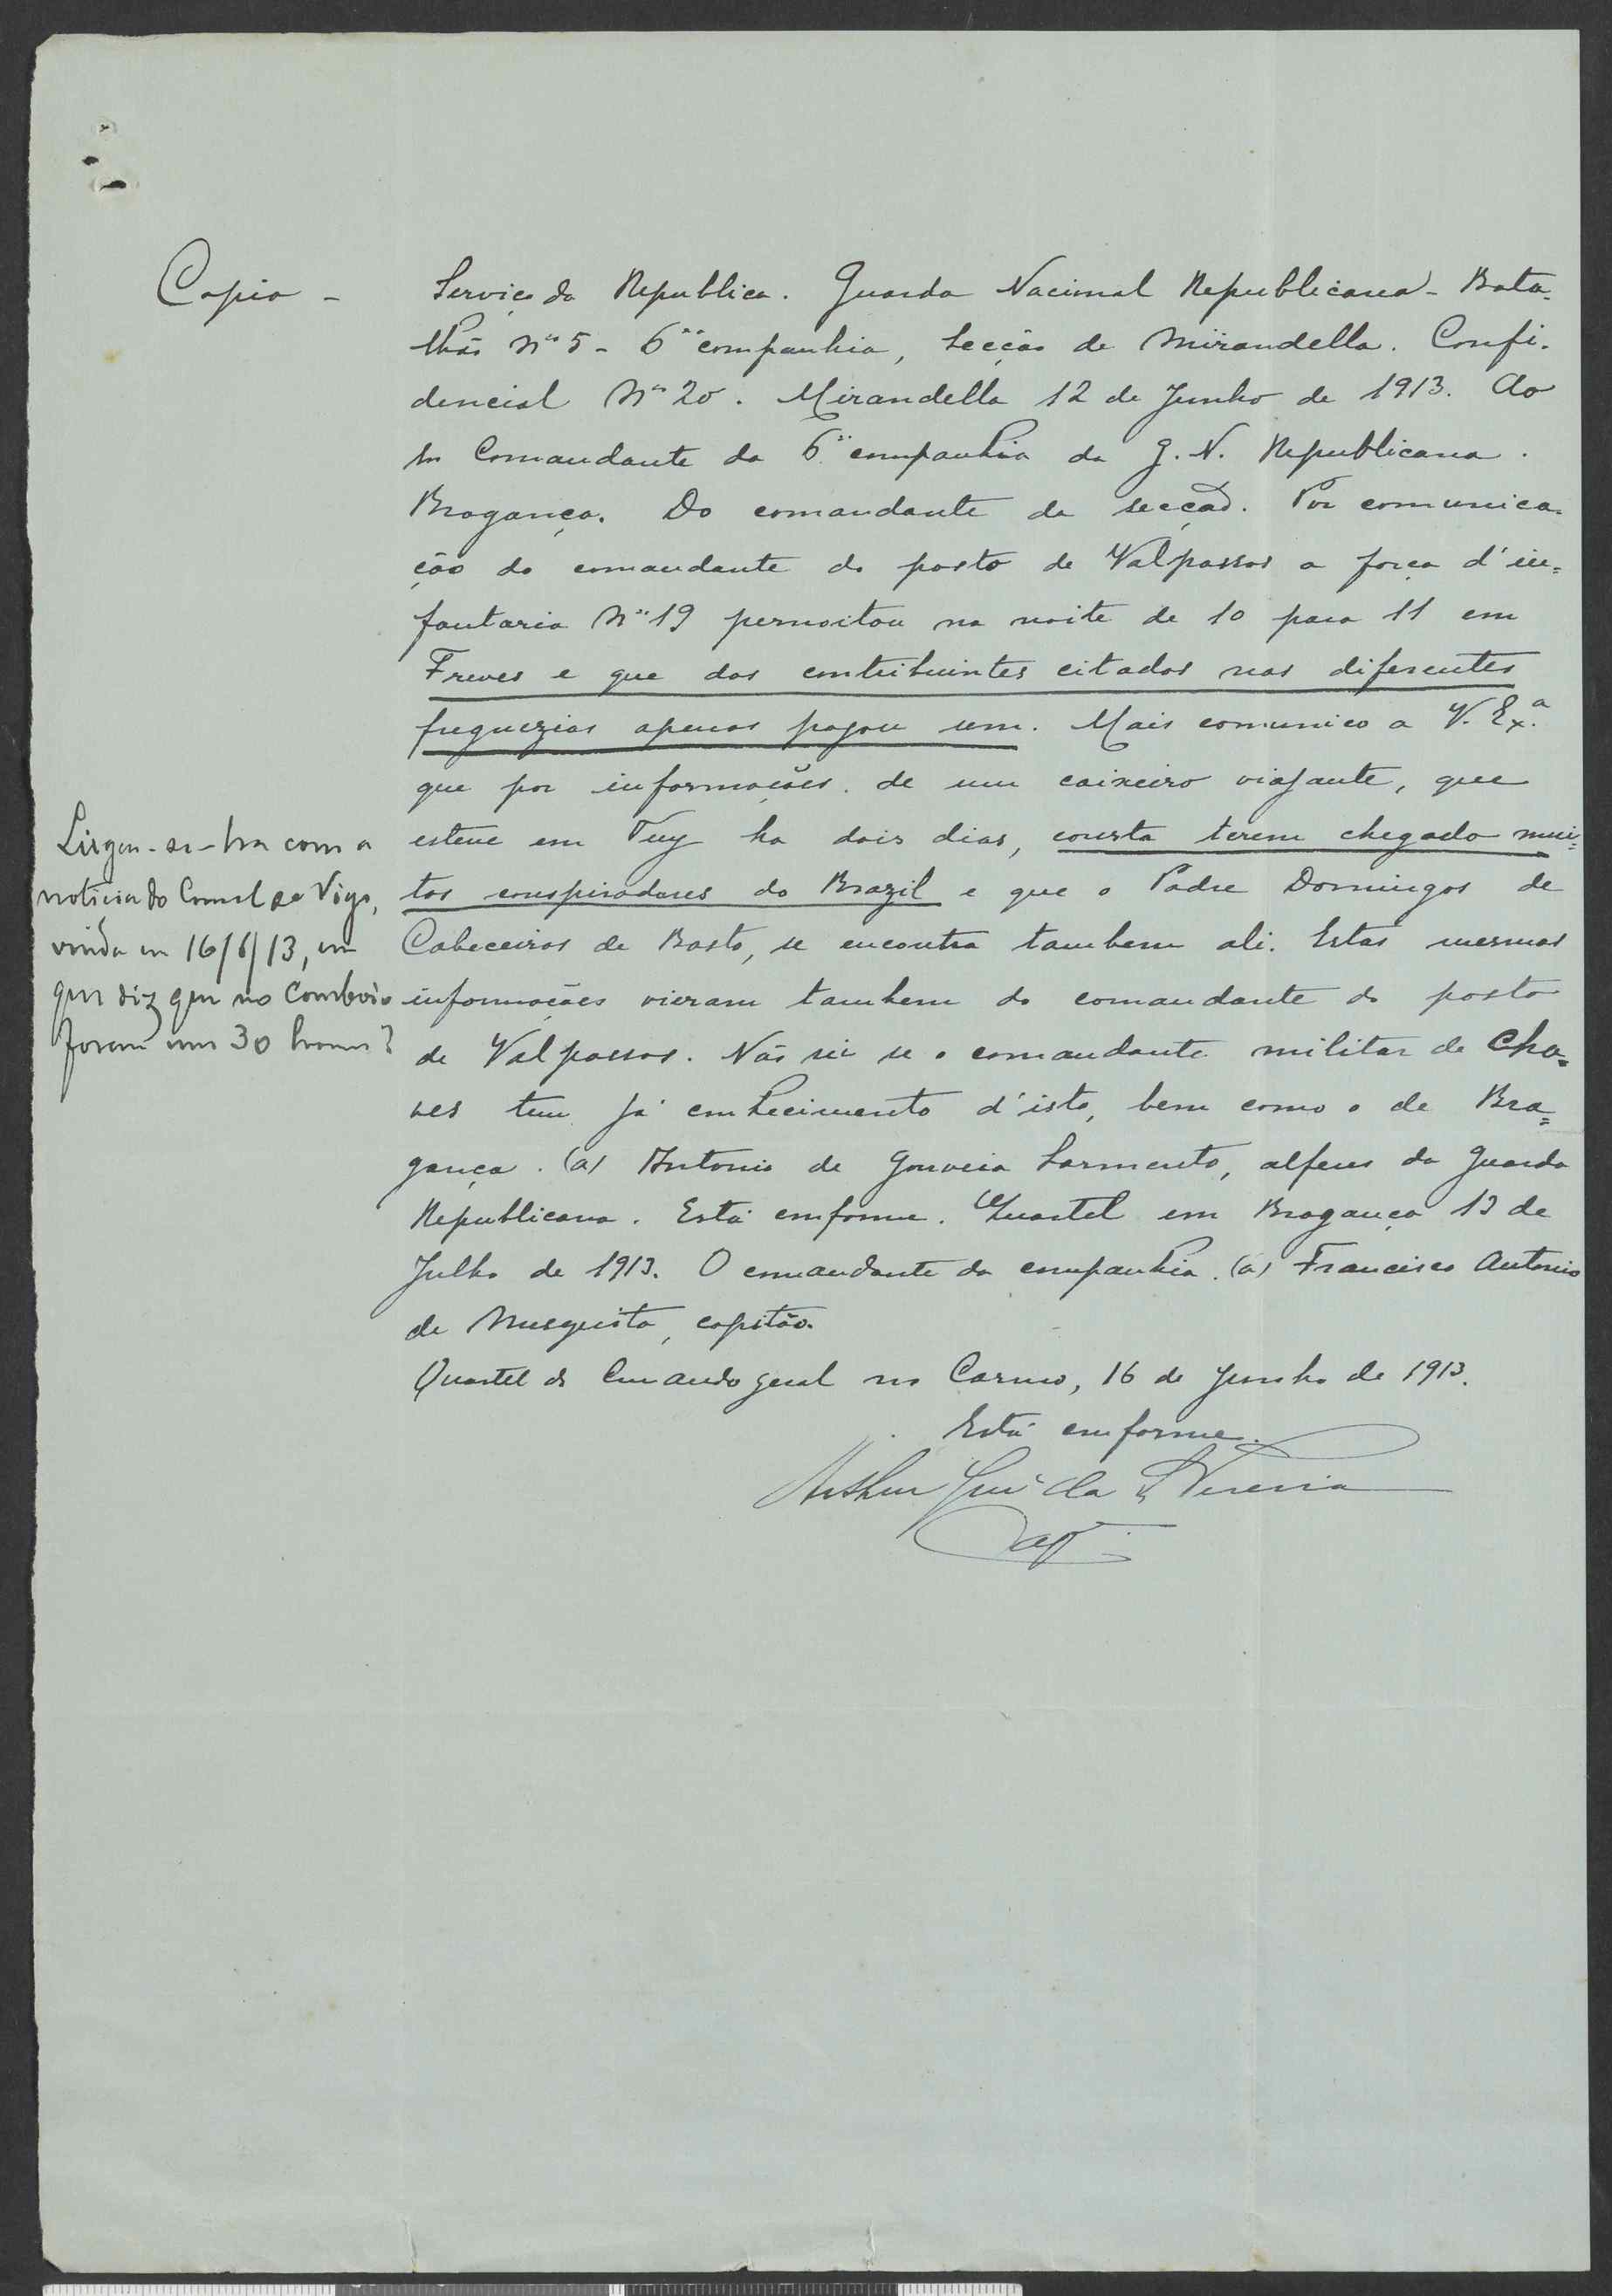 Copia -
Serviço da Republica. Guarda Nacional Republicana - Bata-
lhão Nº 5 - 6ª companhia, Secção de Mirandella. Confi-
dencial Nº 20. Mirandella 12 de Junho de 1913. Ao
Sr Comandante da 6ª companhia da G. N. Republicana.
Bragança. Do comandante da secção. Por comunica-
ção do comandante do posto de Valpassos a força d'in=
fantaria Nº 19 pernoitou na noite de 10 para 11 em
e que dos contribuintes citados nas diferentes
freguezias apenas pagou um. Mais comunico a V. Ex.ª
que por informações de um caixeiro viajante, que
esteve em Tuy ha dois dias, consta terem chegado mui=
tos conspiradores do Brazil e que o Padre Domingos de
Cabeceiras de Basto, se encontra tambem ali. Estas mesmas
informações vieram tambem do comandante do posto
de Valpassos. Não sei se o comandante militar de Cha=
ves tem já conhecimento d'isto, bem como o de Bra=
gança. (a) Antonio de Gouveia Sarmento, alferes da Guarda
Republicana. Está conforme. Quartel em Bragança 13 de
Julho de 1913. O comandante da companhia. (a) Francisco Antonio
de Musqueita, capitão.
Quartel do Comando geral no Carmo, 16 de Junho de 1913.
Está conforme.
Arthur da
Cap.
Ligar-se-ha com a
noticia do Consul de Vigo,
vinda em 16/6/13, em
que diz que no comboio
foram uns 30 homens?